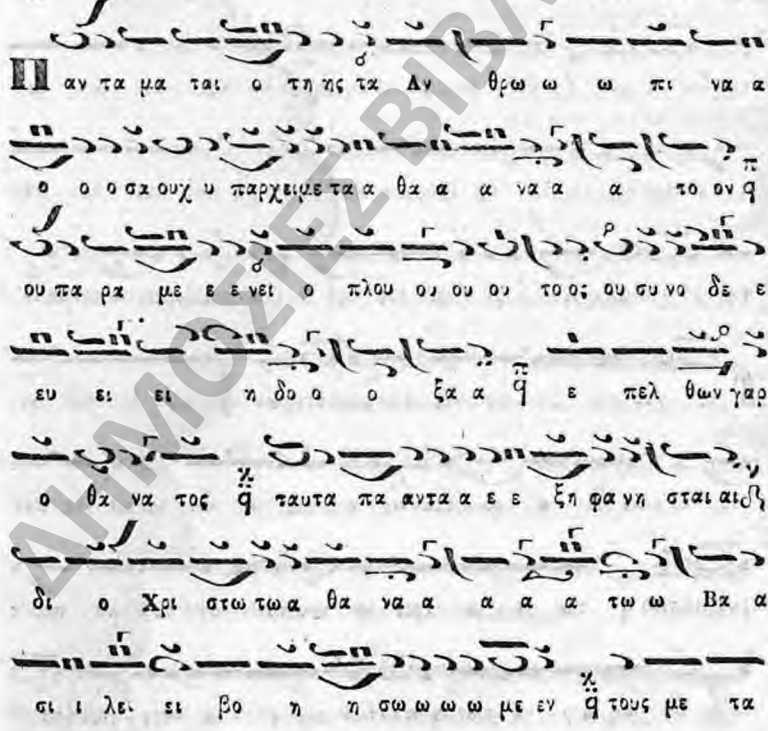 Παν τα μα ται ο τη ης τα Αν θρω ω ω πι να α
ο ο ο σα ουχ υ παρχει με τα α θα α α να α α το ον
ου πα ρα με ε ε νει ο πλου ου ου ου το ος ου συ νο δε ε
ευ ει ει η δο ο ο ξα α α ε πελ θων γαρ
ο θα να τος ταυτα πα αντα α ε ε ξη φα νη σται αι
δι ο Χρι στω τω α θα να α α α α τω ω Βα α
σι ι λει ει βο η η σω ω ω ω με εν τους με τα
ΔΗΜΟΣΙΕΣ ΒΙΒΛ